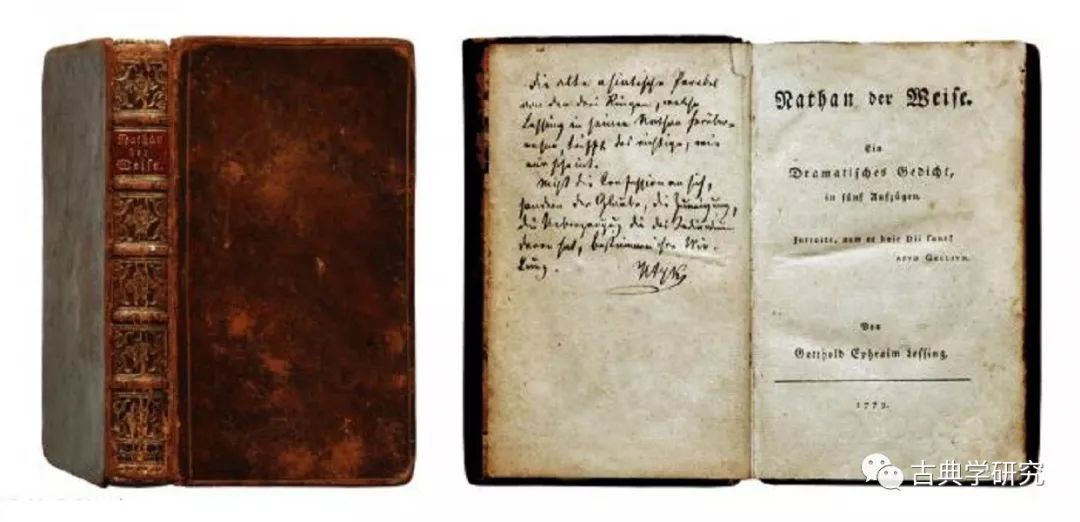 Nathan
der
Weise.
Die alte asiatische Parabel
von den drei Ringen, welche
Lessing in seinem Nathan herüber-
nahm, trifft das richtige, wie
mir scheint.
Nicht die Confession an sich,
sondern der Glaube, die Zuneigung,
die die das
hat, bestimmen ihre Wir-
kung.
Nathan der Weise.
Ein
Dramatisches Gedicht,
in fünf Aufzügen.
Introite, nam et heic Dii sunt!
APVD GELLIVM.
Von
Gotthold Ephraim Lessing.
1779.
古典学研究